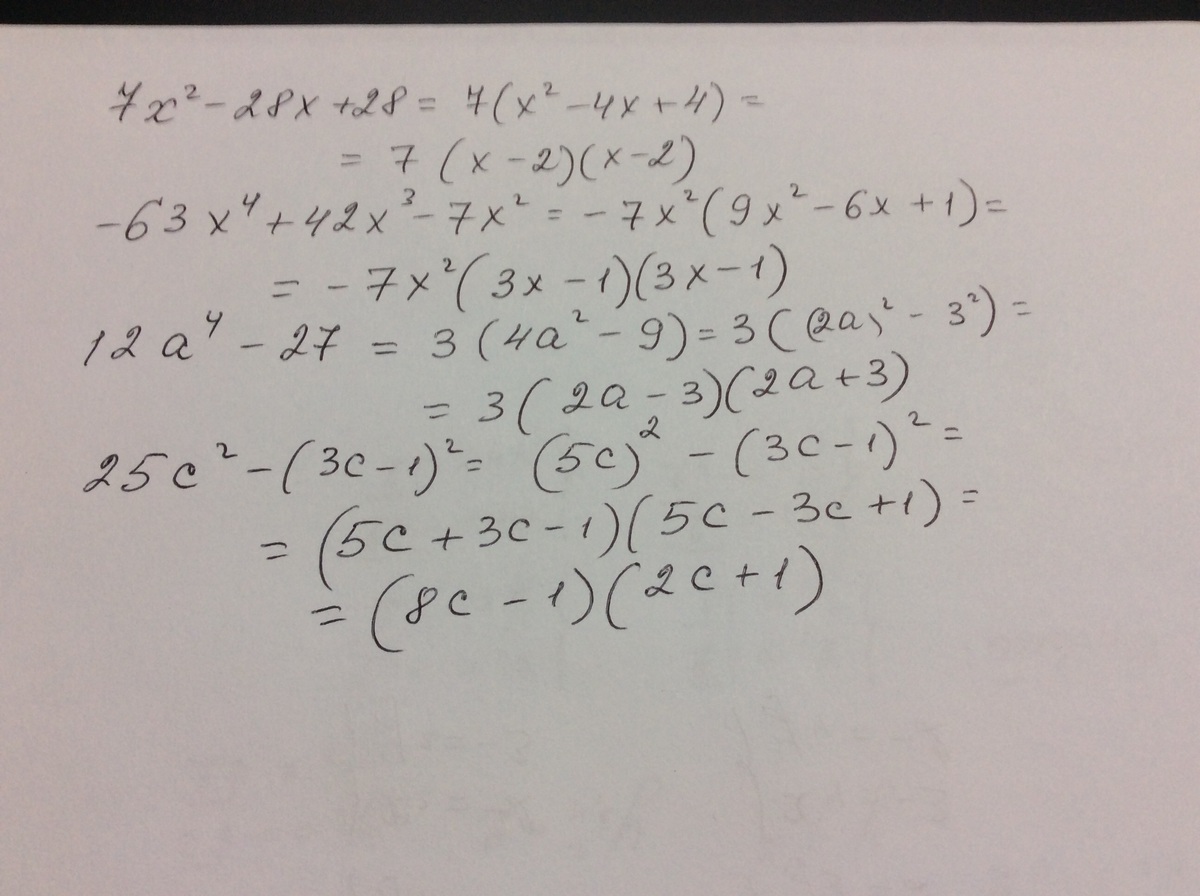 7x² - 28x + 28 = 7(x² - 4x + 4) =
= 7 (x - 2)(x - 2)
-63x⁴ + 42x³ - 7x² = -7x²(9x² - 6x + 1) =
= -7x²(3x - 1)(3x - 1)
12a⁴ - 27 = 3(4a² - 9) = 3((2a)² - 3²) =
= 3(2a - 3)(2a + 3)
25c² - (3c - 1)² = (5c)² - (3c - 1)² =
= (5c + 3c - 1)(5c - 3c + 1) =
= (8c - 1)(2c + 1)